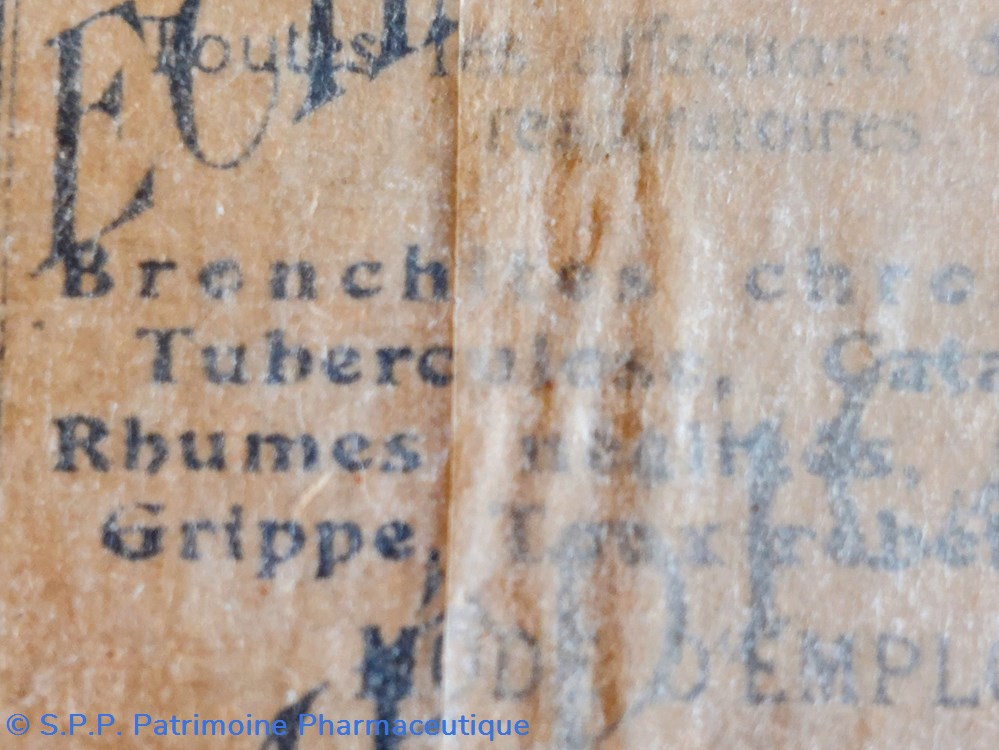 ECHA
Toutes les affections d
respiratoires.
Bronchites chro
Tuberculose, Cata
Rhumes négligés,
Grippe, Toux rebel
MODE D'EMPLO
© S.P.P. Patrimoine Pharmaceutique